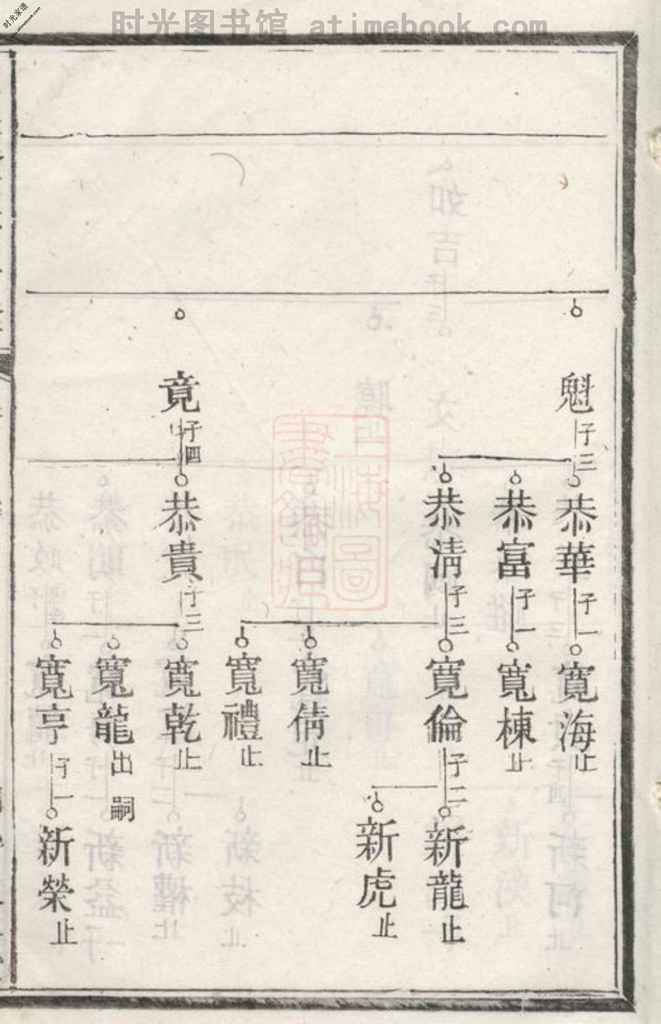 时光图书馆 - atimebook.com
时光家谱
魁子三
恭華子一
寬海止
恭富子一
寬棟止
恭清子三
寬倫子二
新龍止
新虎止
寬倩止
寬禮止
竟子四
恭貴子三
寬乾止
寬龍出嗣
寬亨子一
新榮止